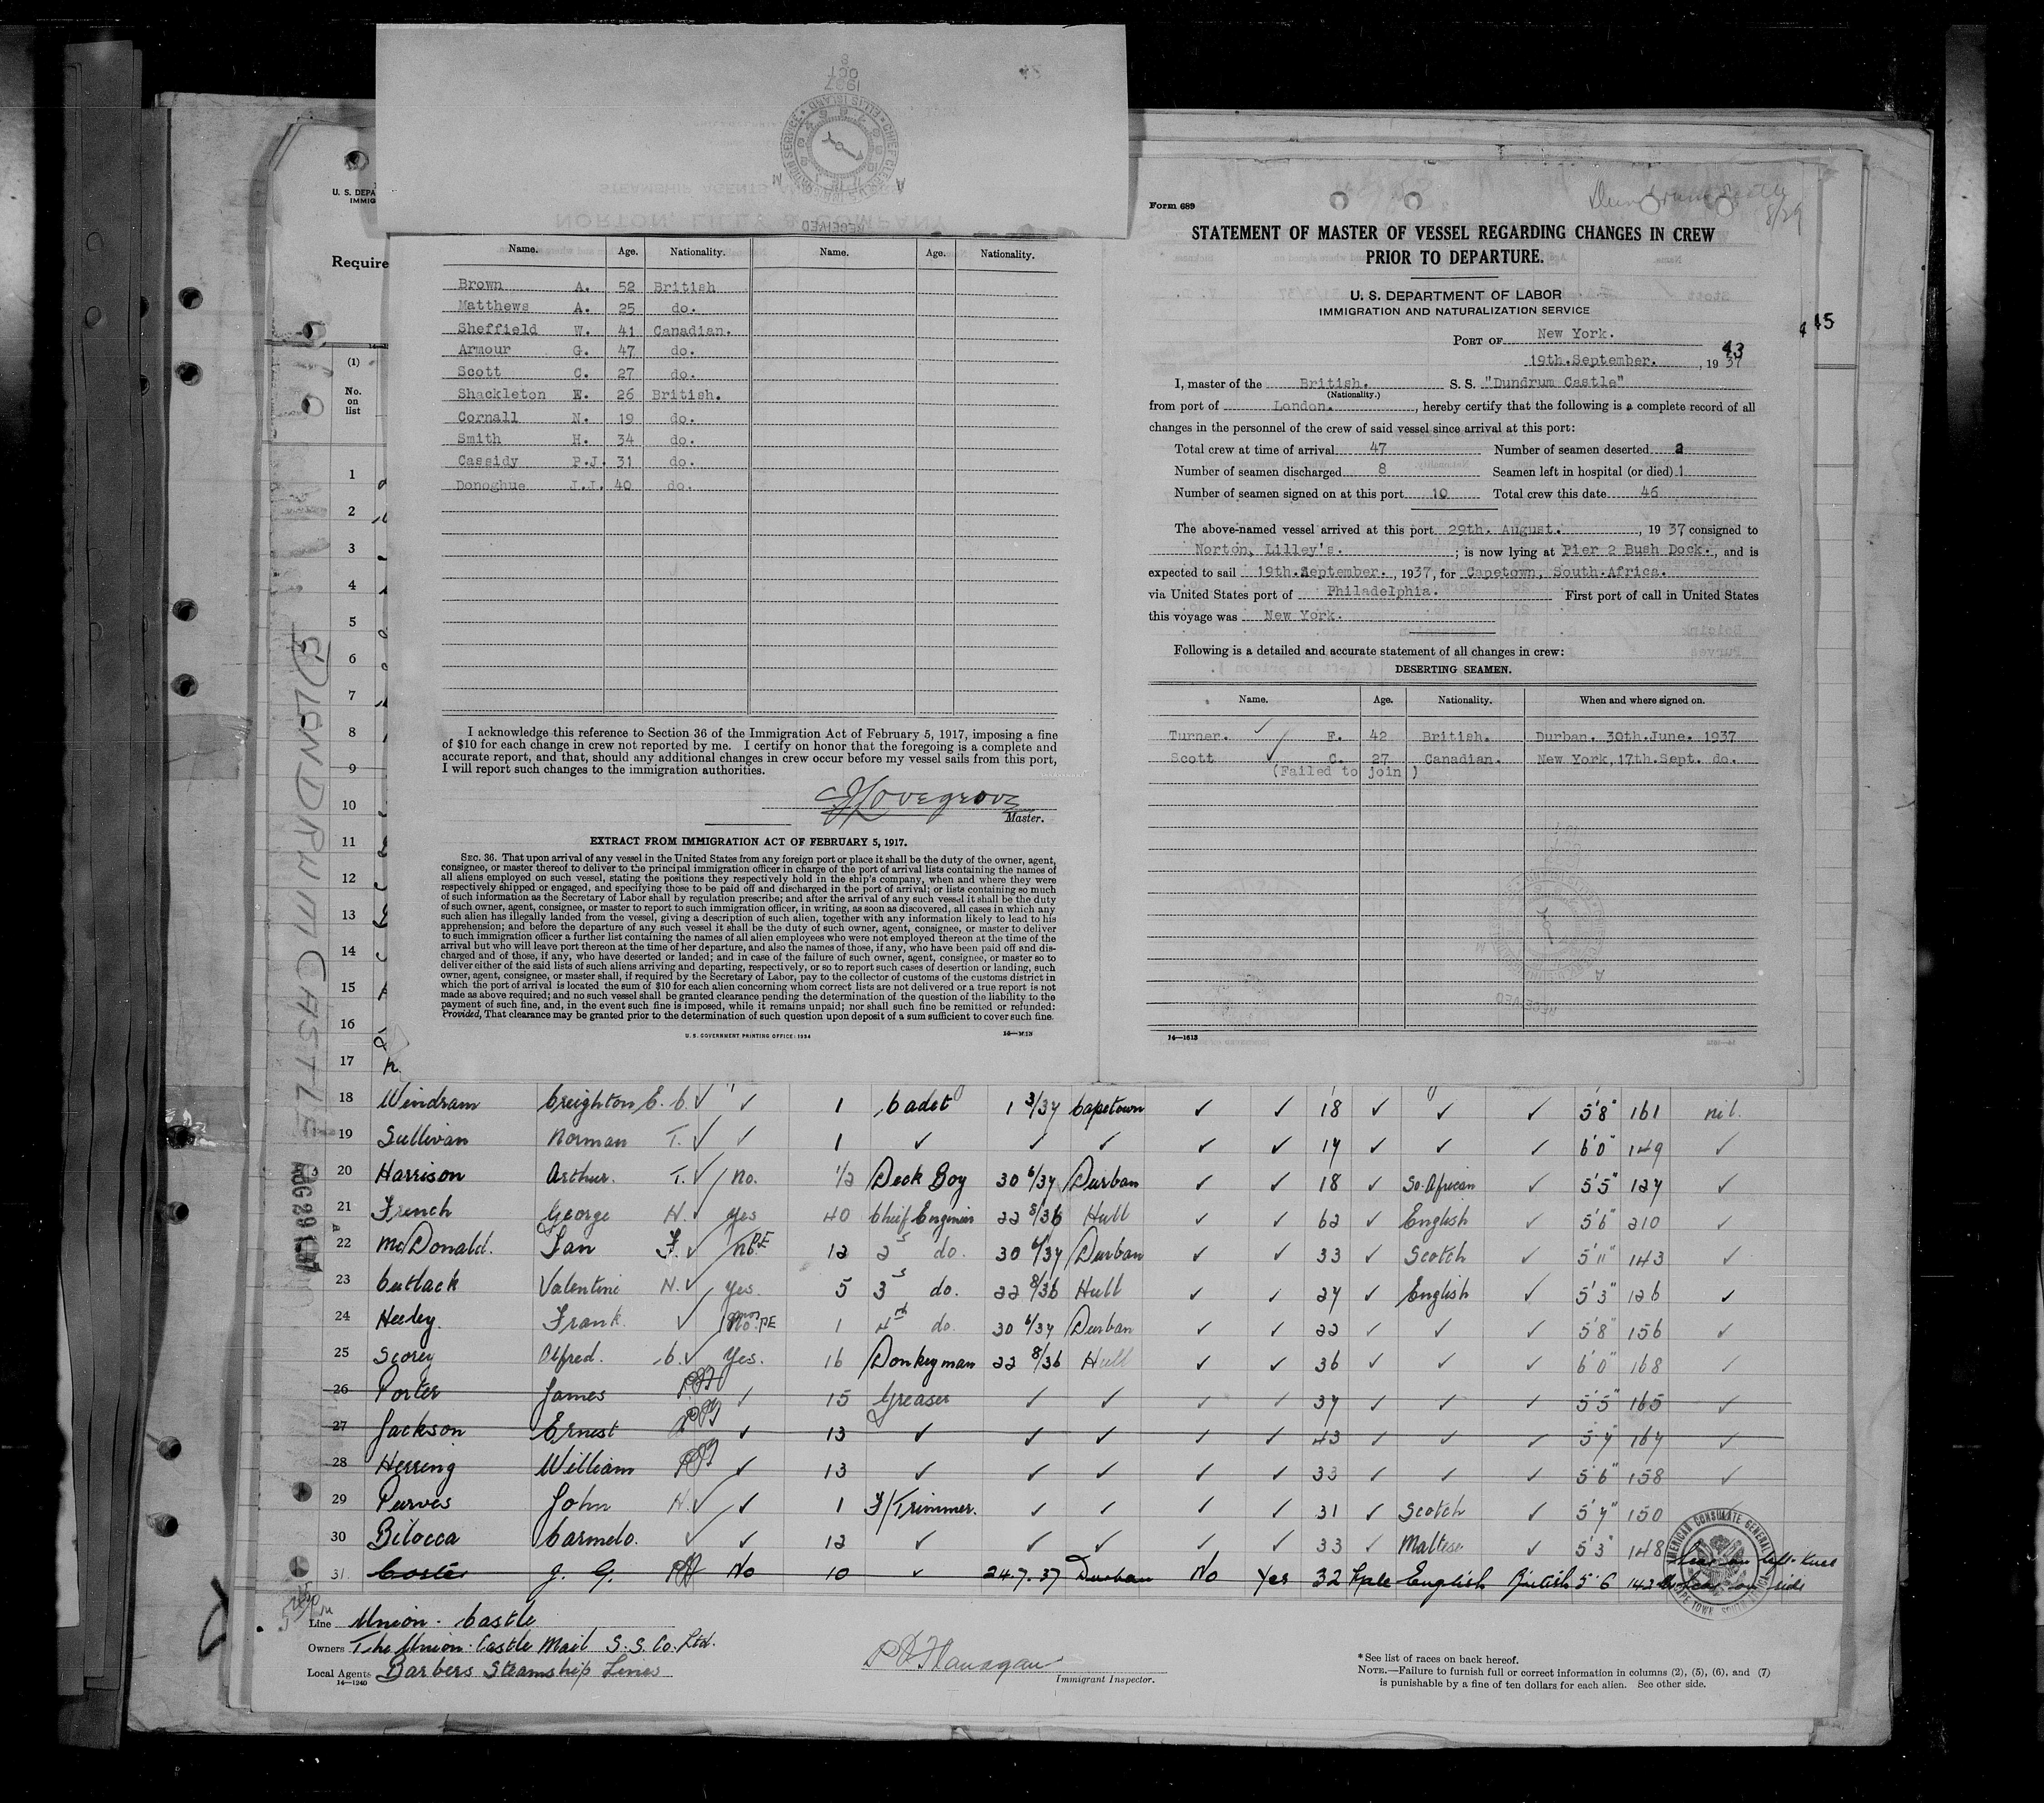 U. S. DEPA
IMMIG
Require
(1)
No.
on
list
1
2
3
4
5
6
7
8
9
10
11
12
13
14
15
16
17
DUNDRUM CASTLE
AUG 29 1937
RECEIVED
1937
OCT
8
NORTON, LILLY & COMPANY
STEAMSHIP AGENTS
Name. Age. Nationality. Name. Age. Nationality.
Brown A. 52 British
Matthews A. 25 do.
Sheffield W. 41 Canadian.
Armour G. 47 do.
Scott C. 27 do.
Shackleton E. 26 British.
Cornall N. 19 do.
Smith H. 34 do.
Cassidy P.J. 31 do.
Donoghue J.J. 40 do.
I acknowledge this reference to Section 36 of the Immigration Act of February 5, 1917, imposing a fine
of $10 for each change in crew not reported by me. I certify on honor that the foregoing is a complete and
accurate report, and that, should any additional changes in crew occur before my vessel sails from this port,
I will report such changes to the immigration authorities.
Lovegrove
Master.
EXTRACT FROM IMMIGRATION ACT OF FEBRUARY 5, 1917.
SEC. 36. That upon arrival of any vessel in the United States from any foreign port or place it shall be the duty of the owner, agent,
consignee, or master thereof to deliver to the principal immigration officer in charge of the port of arrival lists containing the names of
all aliens employed on such vessel, stating the positions they respectively hold in the ship's company, when and where they were
respectively shipped or engaged, and specifying those to be paid off and discharged in the port of arrival; or lists containing so much
of such information as the Secretary of Labor shall by regulation prescribe; and after the arrival of any such vessel it shall be the duty
of such owner, agent, consignee, or master to report to such immigration officer, in writing, as soon as discovered, all cases in which any
such alien has illegally landed from the vessel, giving a description of such alien, together with any information likely to lead to his
apprehension; and before the departure of any such vessel it shall be the duty of such owner, agent, consignee, or master to deliver
to such immigration officer a further list containing the names of all alien employees who were not employed thereon at the time of the
arrival but who will leave port thereon at the time of her departure, and also the names of those, if any, who have been paid off and dis-
charged and of those, if any, who have deserted or landed; and in case of the failure of such owner, agent, consignee, or master so to
deliver either of the said lists of such aliens arriving and departing, respectively, or so to report such cases of desertion or landing, such
owner, agent, consignee, or master shall, if required by the Secretary of Labor, pay to the collector of customs of the customs district in
which the port of arrival is located the sum of $10 for each alien concerning whom correct lists are not delivered or a true report is not
made as above required; and no such vessel shall be granted clearance pending the determination of the question of the liability to the
payment of such fine, and, in the event such fine is imposed, while it remains unpaid; nor shall such fine be remitted or refunded:
Provided, That clearance may be granted prior to the determination of such question upon deposit of a sum sufficient to cover such fine.
U. S. GOVERNMENT PRINTING OFFICE: 1934
Form 689
Dundrum Castle
8/29
STATEMENT OF MASTER OF VESSEL REGARDING CHANGES IN CREW
PRIOR TO DEPARTURE.
U. S. DEPARTMENT OF LABOR
IMMIGRATION AND NATURALIZATION SERVICE
PORT OF New York.
19th.September. , 1937
I, master of the British. S. S. "Dundrum Castle"
(Nationality.)
from port of London. , hereby certify that the following is a complete record of all
changes in the personnel of the crew of said vessel since arrival at this port:
Total crew at time of arrival 47 Number of seamen deserted 2
Number of seamen discharged 8 Seamen left in hospital (or died) 1
Number of seamen signed on at this port 10 Total crew this date 46
The above-named vessel arrived at this port 29th. August. , 1937, consigned to
Norton, Lilley's. ; is now lying at Pier 2 Bush Dock. , and is
expected to sail 19th.September. , 1937, for Capetown, South.Africa.
via United States port of Philadelphia. First port of call in United States
this voyage was New York.
Following is a detailed and accurate statement of all changes in crew:
DESERTING SEAMEN.
Name. Age. Nationality. When and where signed on.
Turner. F. 42 British. Durban. 30th.June. 1937
Scott C. 27 Canadian. New York,17th.Sept. do.
(Failed to join )
14—1813
43
45
18 Windram Creighton C. C. ✓ ✓ 1 Cadet 1 3/37 Capetown ✓ ✓ 18 ✓ ✓ ✓ 5'8" 161 nil.
19 Sullivan Norman T. ✓ ✓ 1 ✓ ✓ ✓ ✓ ✓ 17 ✓ ✓ ✓ 6'0" 149 ✓
20 Harrison Arthur. T. ✓ No. 1/2 Deck Boy 30 6/37 Durban ✓ ✓ 18 ✓ So. African ✓ 5'5" 127 ✓
21 French George H. ✓ Yes 40 Chief Engineer 22 8/36 Hull ✓ ✓ 62 ✓ English ✓ 5'6" 210 ✓
22 McDonald. Ian F. ✓ No PE 12 2 do. 30 6/37 Durban ✓ ✓ 33 ✓ Scotch ✓ 5'11" 143 ✓
23 Cutlack Valentine H. ✓ Yes. 5 3 do. 22 8/36 Hull ✓ ✓ 27 ✓ English ✓ 5'3" 126 ✓
24 Heeley. Frank. ✓ No. PE 1 4th do. 30 6/37 Durban ✓ ✓ 22 ✓ ✓ ✓ 5'8" 156 ✓
25 Scorey Alfred. C. ✓ Yes. 16 Donkeyman 22 8/36 Hull ✓ ✓ 36 ✓ ✓ ✓ 6'0" 168 ✓
26 Porter James ✓ 15 Greaser ✓ ✓ ✓ ✓ 37 ✓ ✓ ✓ 5'5" 165 ✓
27 Jackson Ernest ✓ 13 ✓ ✓ ✓ ✓ ✓ 43 ✓ ✓ ✓ 5'7 167 ✓
28 Herring William ✓ 13 ✓ ✓ ✓ ✓ ✓ 33 ✓ ✓ ✓ 5'6" 158 ✓
29 Purves John H. ✓ ✓ 1 F/Trimmer. ✓ ✓ ✓ ✓ 31 ✓ Scotch ✓ 5'7" 150
30 Bilocca Carmelo. ✓ ✓ 12 ✓ ✓ ✓ ✓ ✓ 33 ✓ Maltese ✓ 5'3" 148
31. J. G. No 10 ✓ 24.7.37 Durban No Yes 32 English British 5'6 142 Scar on left knee
AMERICAN CONSULATE GENERAL
CAPE TOWN SOUTH AFRICA
Line Union-Castle
Owners The Union-Castle Mail S.S. Co. Ltd.
Local Agents Barbers Steamship Lines
14—1240
P A Flanagan
Immigrant Inspector.
*See list of races on back hereof.
NOTE.—Failure to furnish full or correct information in columns (2), (5), (6), and (7)
is punishable by a fine of ten dollars for each alien. See other side.